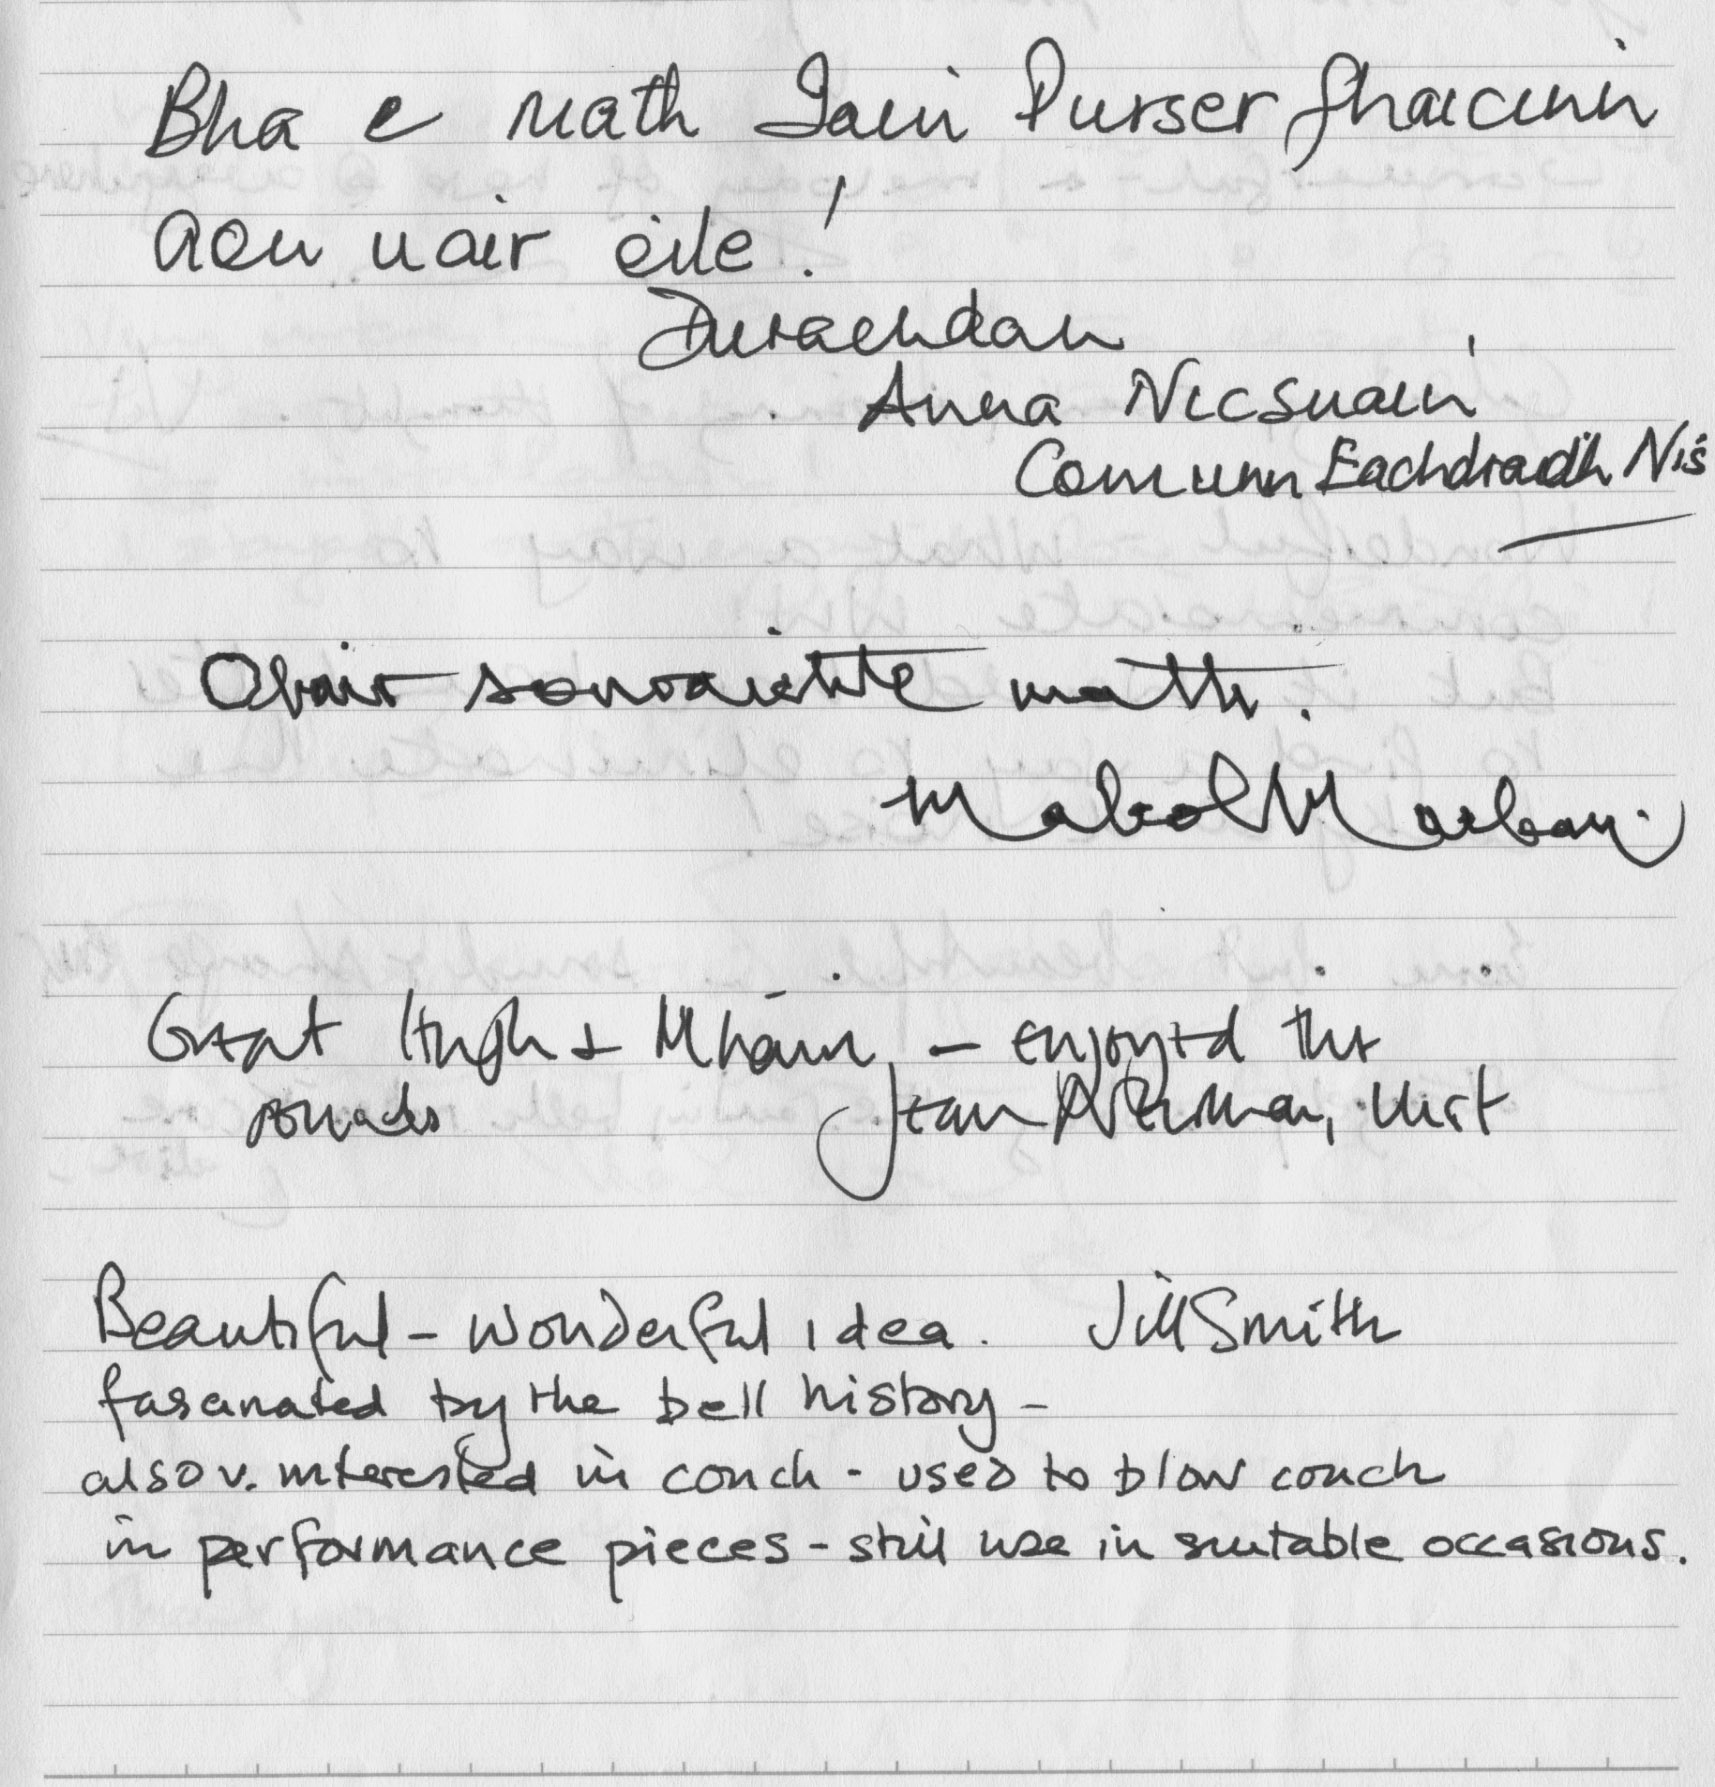 Bha e math Iain Purser fhaicinn
aon uair eile!
Durachdan
Anna NicSuain
Comunn Eachdraidh Nis
Obair sonraichte math.
Great Hugh & Mhairi, – enjoyed the
sounds
Jean
Beautiful – wonderful idea. Jill Smith
fascinated by the bell history –
also v. interested in conch - used to blow conch
in performance pieces - still use in suitable occasions.